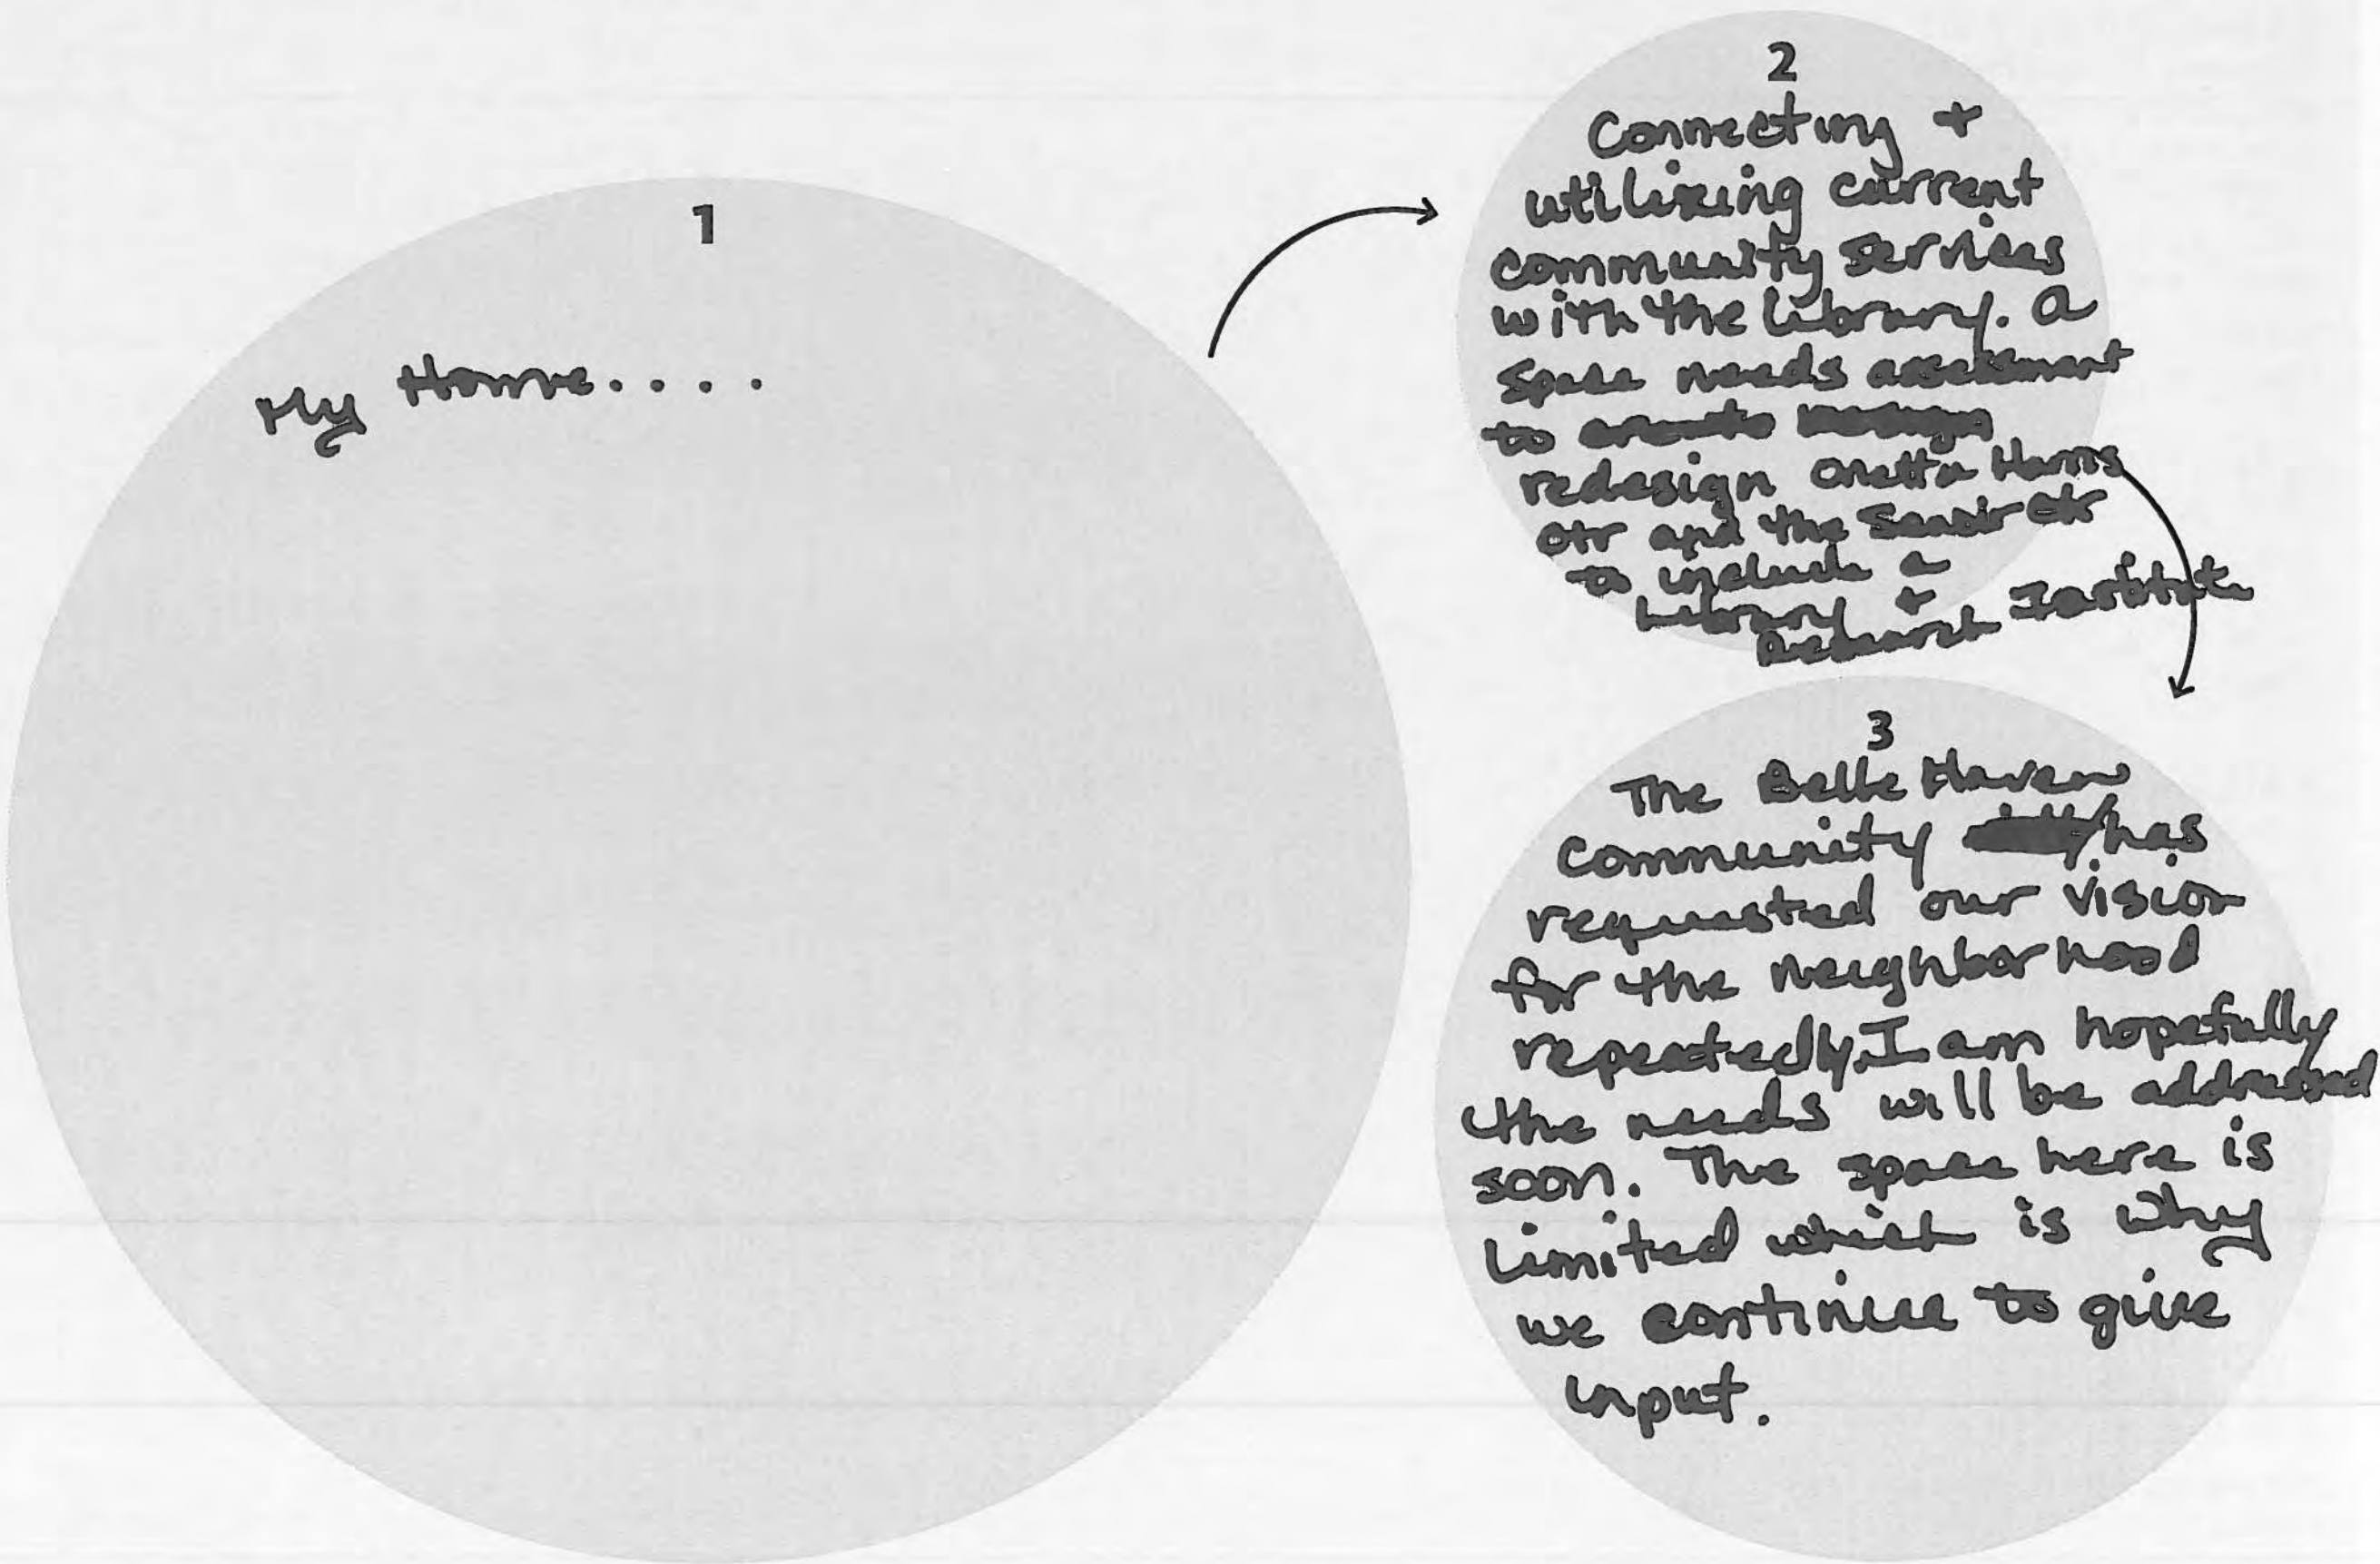 1
My Home....
2
Connecting +
utilizing current
community services
with the library. A
space needs assessment
to create
redesign Onetta Harris
Ctr and the Senoir Ctr
to include a
Library +
Research Institute
3
The Belle Haven
Community has
requested our vision
for the neighborhood
repeatedly. I am hopefully
the needs will be addressed
soon. The space here is
limited which is why
we continue to give
input.